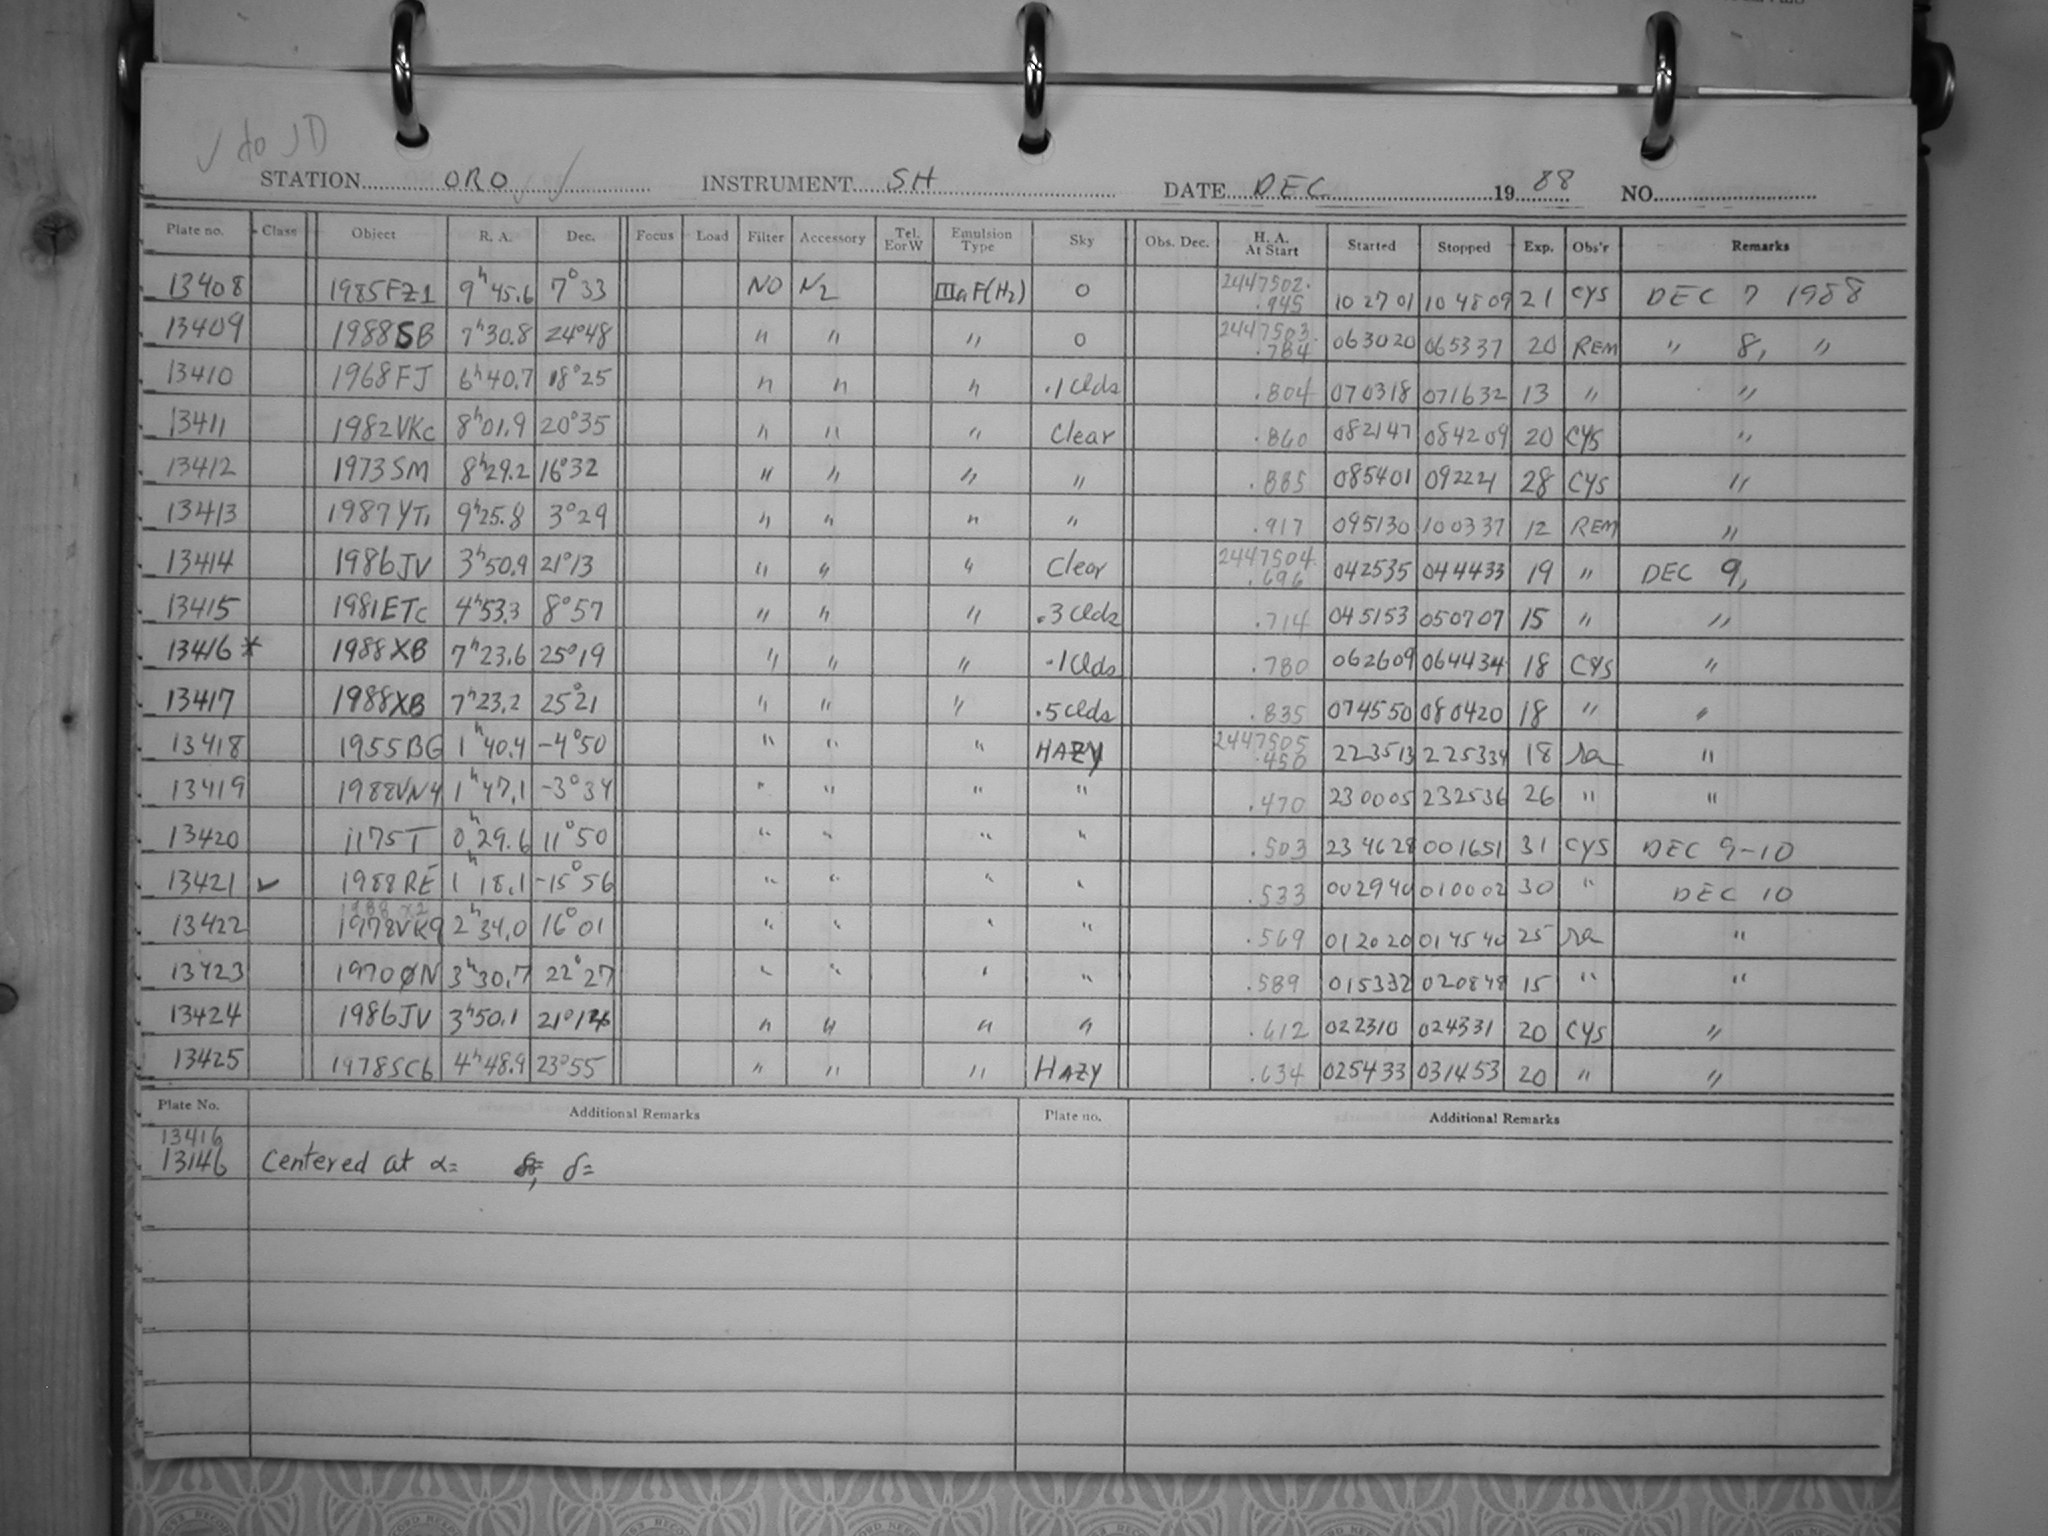 √ to JD
STATION ORO √ INSTRUMENT SH DATE DEC 1988 NO.
Plate no. Class Object R. A. Dec. Focus Load Filter Accessory Tel. E or W Emulsion Type Sky Obs. Dec. H. A. At Start Started Stopped Exp. Obs'r Remarks
13408 1985FZ1 9h45.6 7°33 NO N2 IIIaF(H2) 0 2447502. .945 102701 104809 21 CYS DEC 7 1988
13409 1988SB 7h30.8 24°48 " " " 0 2447503. .784 063020 065337 20 REM " 8, "
13410 1968FJ 6h40.7 18°25 " " " .1 Clds .804 070318 071632 13 " "
13411 1982VKc 8h01.9 20°35 " " " Clear .860 082147 084209 20 CYS "
13412 1973SM 8h29.2 16°32 " " " " .885 085401 092221 28 CYS "
13413 1987YT1 9h25.8 3°29 " " " " .917 095130 100337 12 REM "
13414 1986JV 3h50.9 21°13 " " " Clear 2447504. .696 042535 044433 19 " DEC 9,
13415 1981ETc 4h53.3 8°57 " " " .3 Clds .714 045153 050707 15 " "
13416 * 1988XB 7h23.6 25°19 " " " .1 Clds .780 062609 064434 18 CYS "
13417 1988XB 7h23.2 25°21 " " " .5 Clds .835 074550 080420 18 " "
13418 1955BG 1h40.4 -4°50 " " " HAZY 2447505 .450 223513 225334 18 "
13419 1988VN4 1h47.1 -3°34 " " " " .470 230005 232536 26 " "
13420 1175T 0h29.6 11°50 " " " " .503 234628 001651 31 CYS DEC 9-10
13421 √ 1988RE 1h18.1 -15°56 " " " " .533 002940 010002 30 " DEC 10
13422 1978VK9 2h34.0 16°01 " " " " .569 012020 014540 25 "
13423 1970ØN 3h30.7 22°27 " " " " .589 015332 020848 15 " "
13424 1986JV 3h50.1 21°14 " " " " .612 022310 024331 20 CYS "
13425 1978SC6 4h48.9 23°55 " " " HAZY .634 025433 031453 20 " "
Plate No. Additional Remarks Plate no. Additional Remarks
13416
13146 Centered at α= , δ=